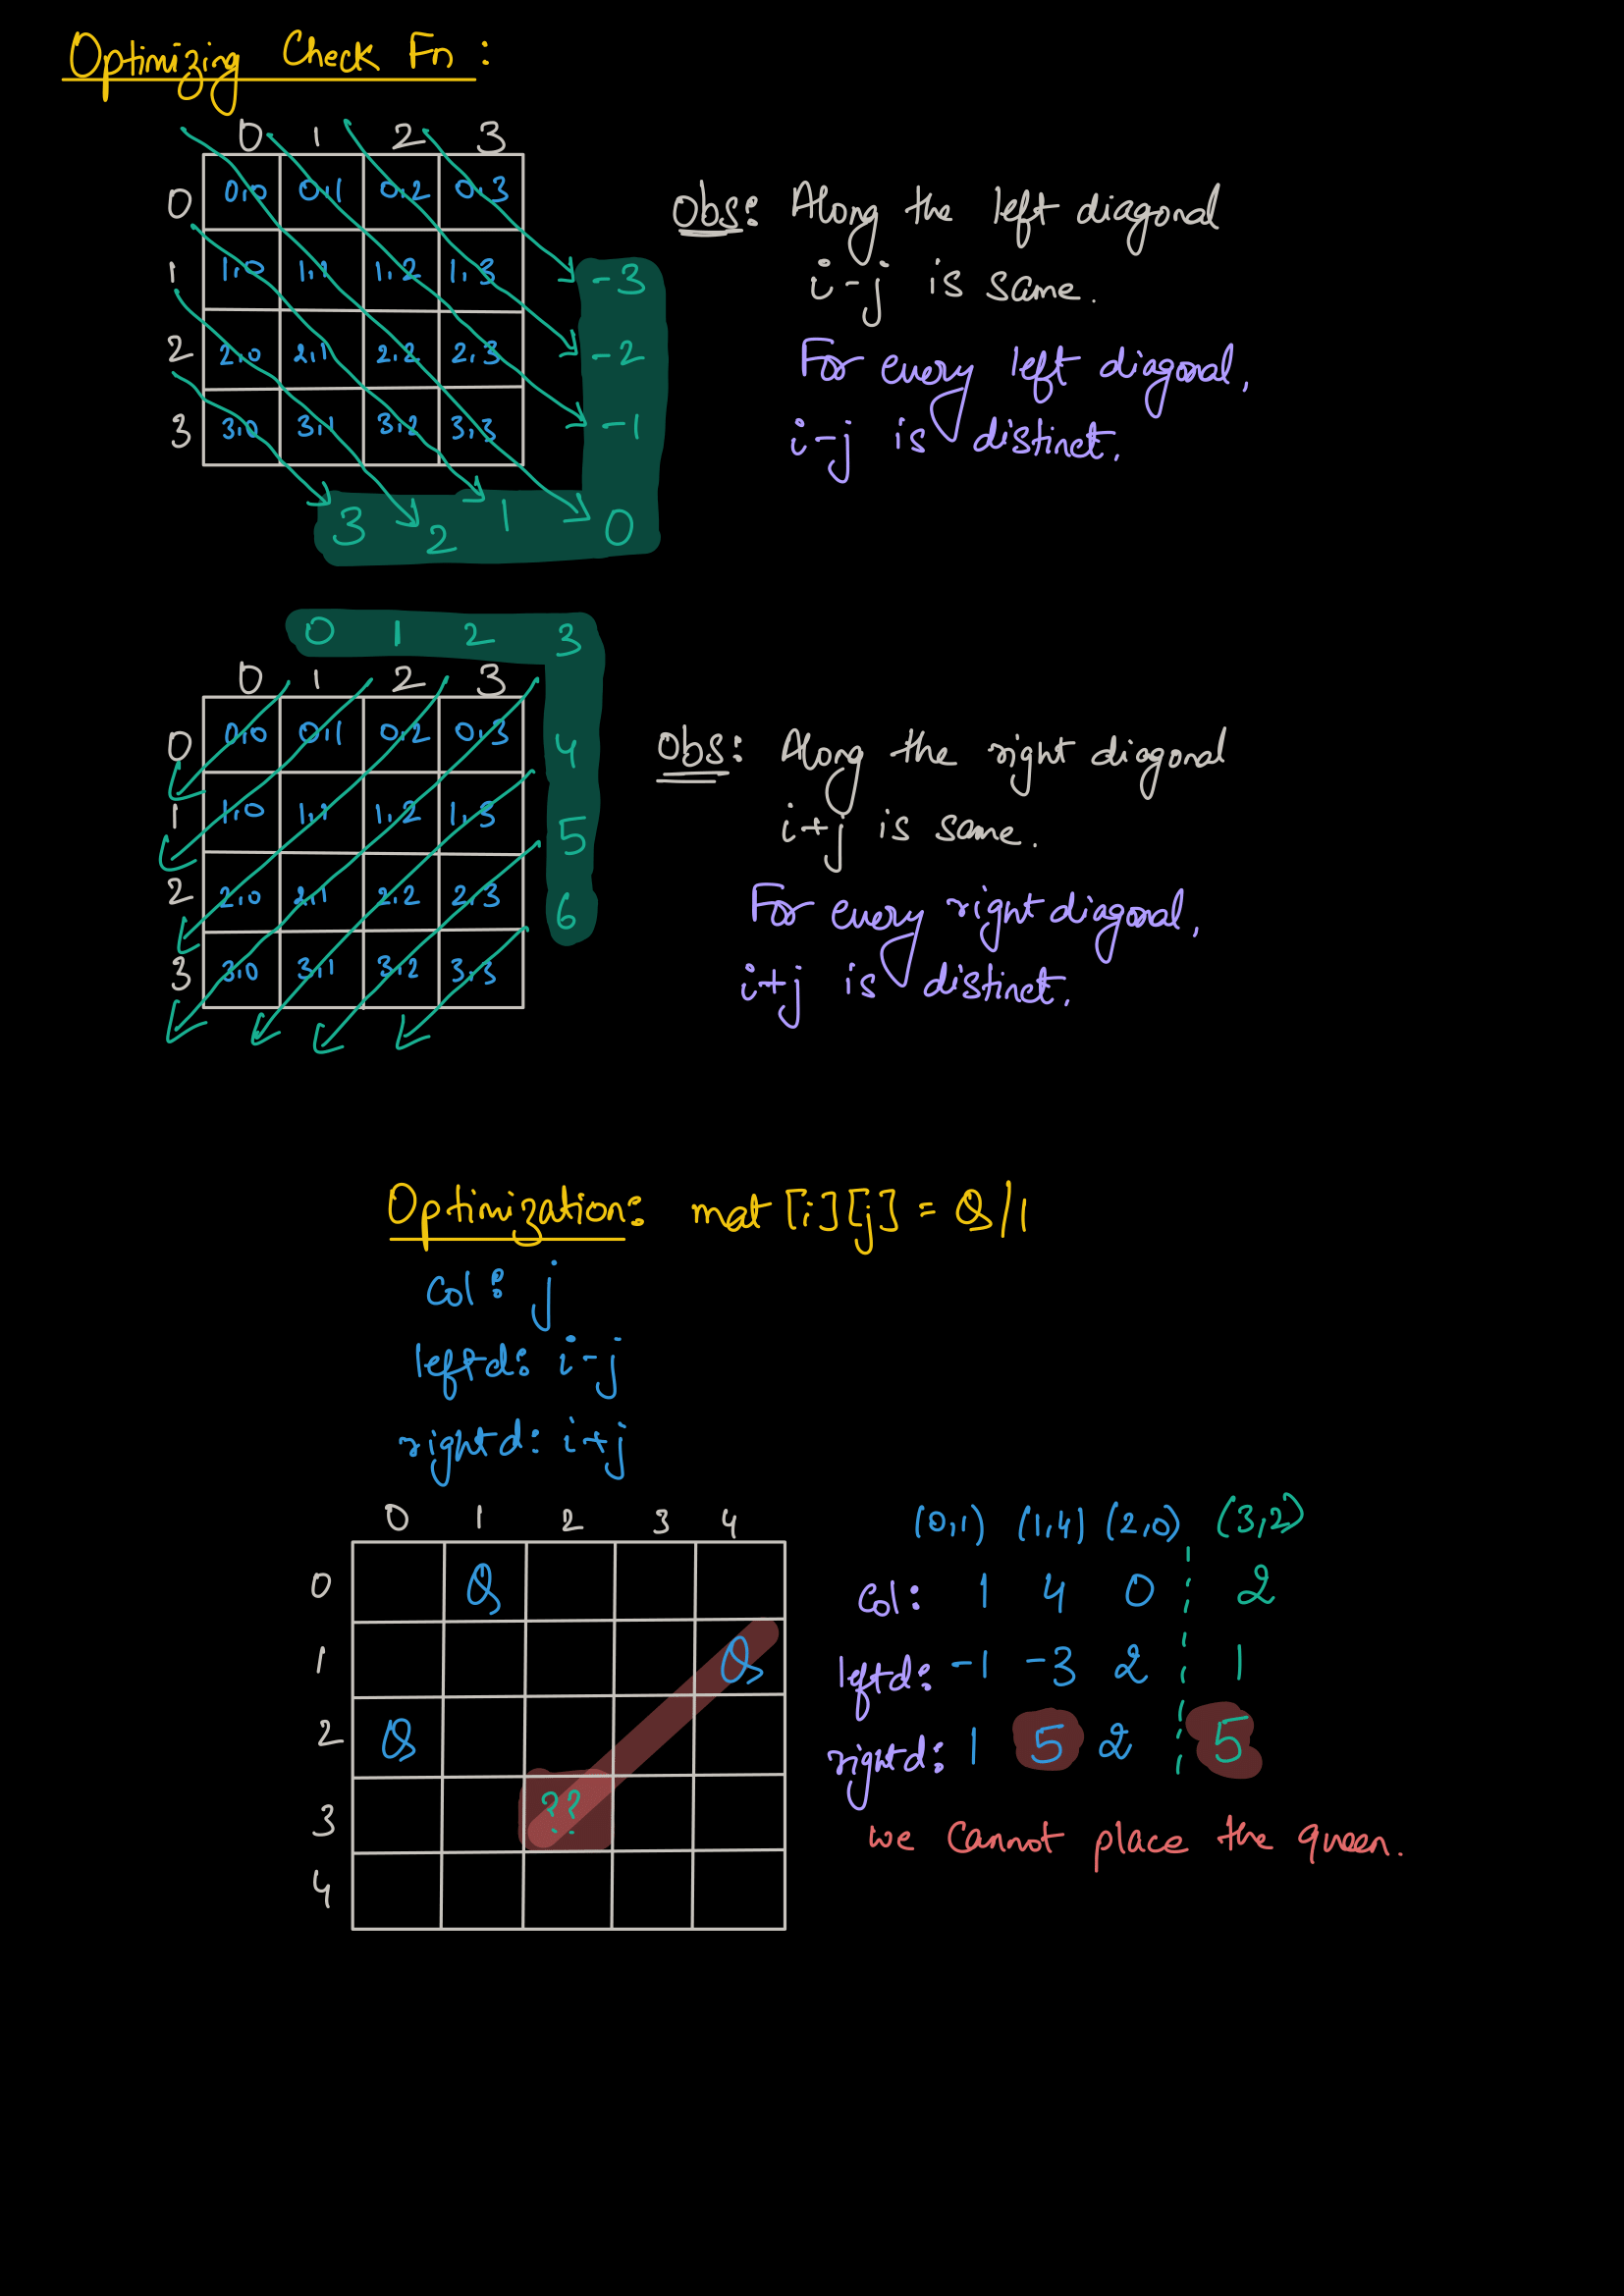 Optimizing Check Fn :
0 1 2 3
0 0,0 0,1 0,2 0,3
1 1,0 1,1 1,2 1,3
2 2,0 2,1 2,2 2,3
3 3,0 3,1 3,2 3,3
-3
-2
-1
3 2 1 0
Obs: Along the left diagonal
i-j is same.
For every left diagonal,
i-j is distinct.
0 1 2 3
0 1 2 3
0 0,0 0,1 0,2 0,3 4
1 1,0 1,1 1,2 1,3 5
2 2,0 2,1 2,2 2,3 6
3 3,0 3,1 3,2 3,3
Obs: Along the right diagonal
i+j is same.
For every right diagonal,
i+j is distinct.
Optimization: mat [i][j] = Q/1
Col: j
leftd: i-j
rightd: i+j
0 1 2 3 4
0 Q
1 Q
2 Q
3 ??
4
(0,1) (1,4) (2,0) (3,2)
Col: 1 4 0 2
leftd: -1 -3 2 1
rightd: 1 5 2 5
we cannot place the queen.